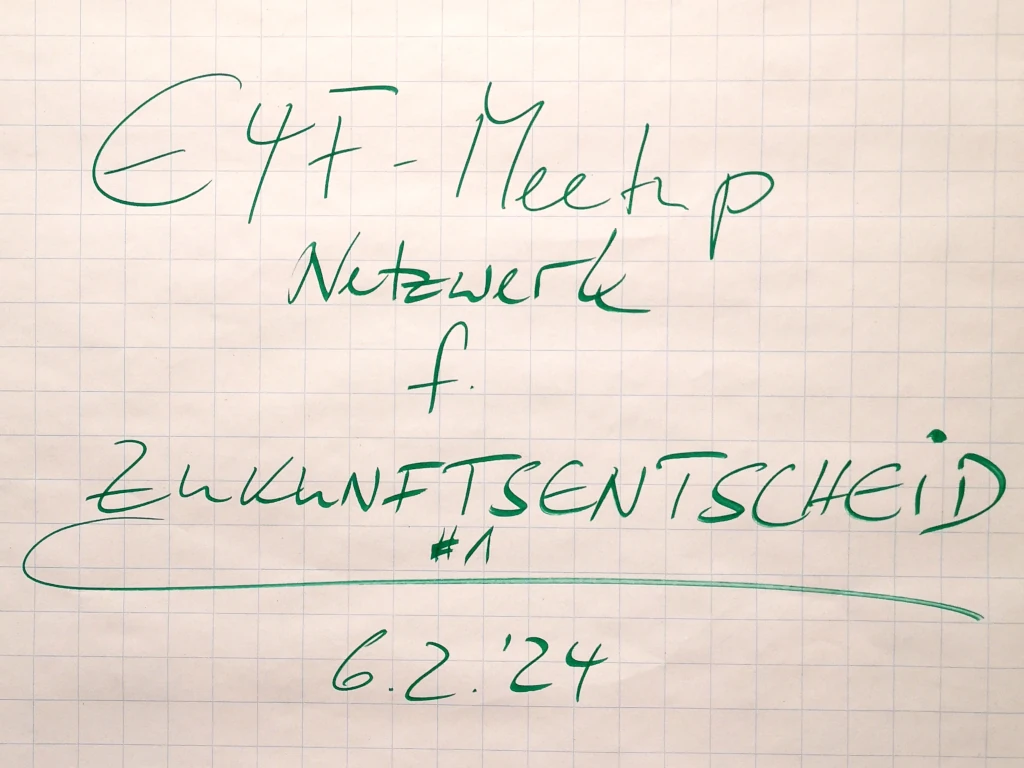 E4F-Meetup
Netzwerk
f.
ZUKUNFTSENTSCHEiD
#1
6.2.'24